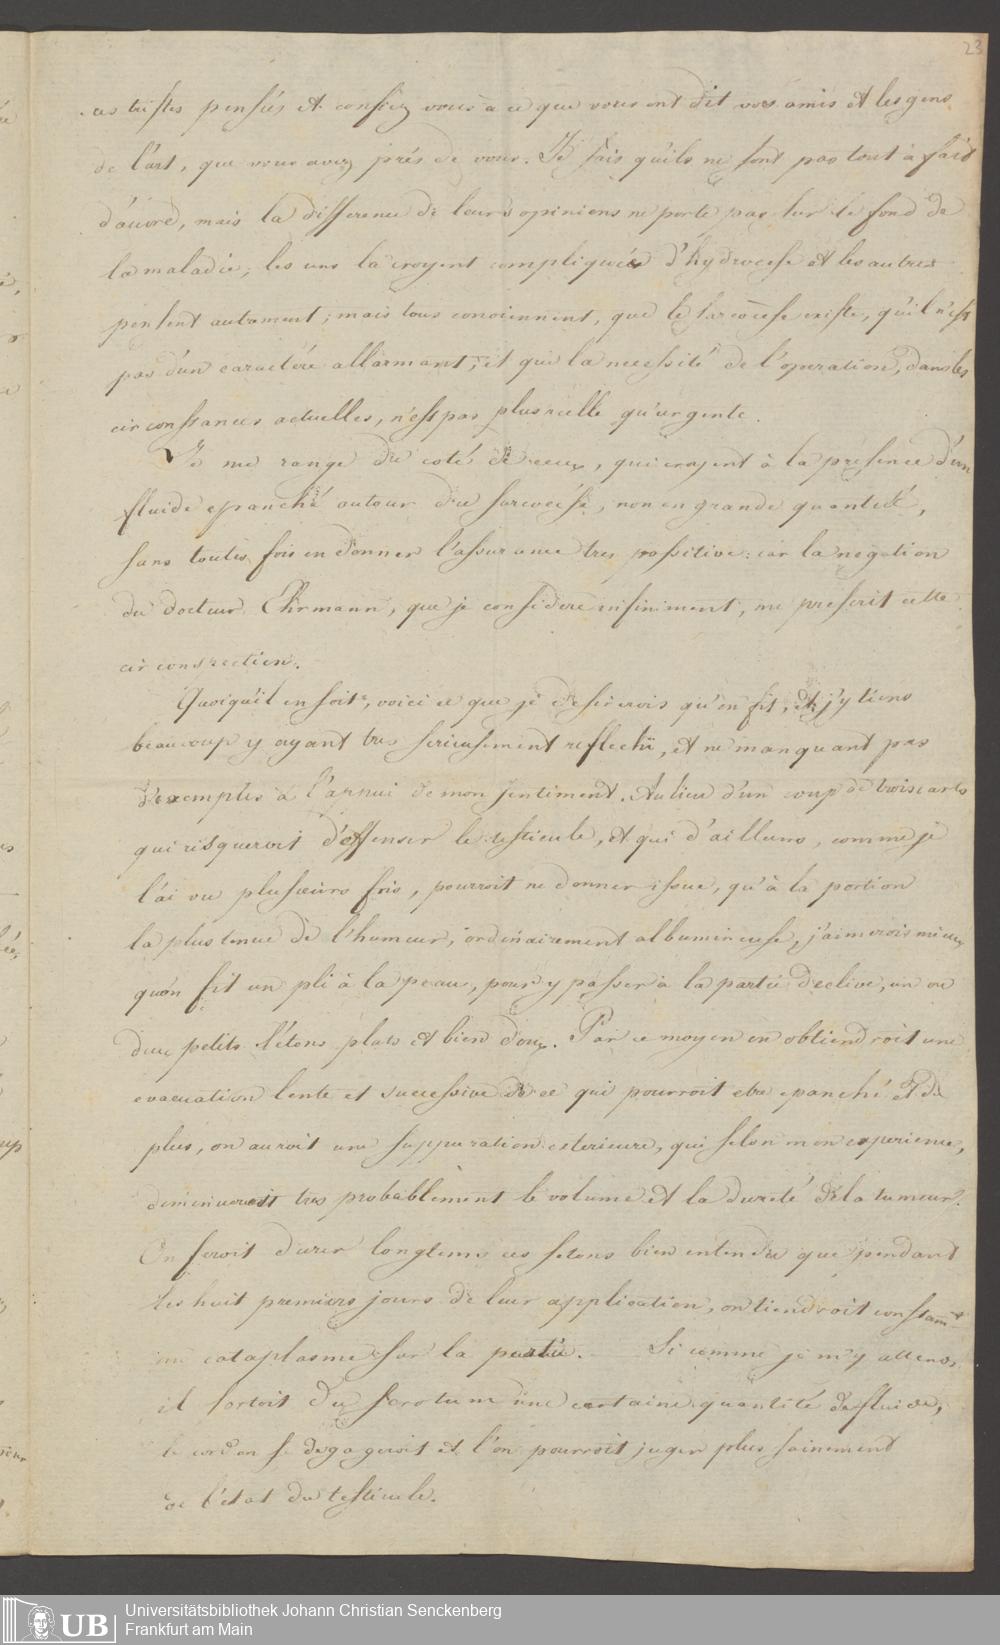 23
ces tristes pensées et confiez vous à ce que vous ont dit vos amis et les gens
de l'art, que vous avez prés de vous. Je sais qu'ils ne sont pas tout à fait
d'accord, mais la difference de leurs opinions ne porte pas sur le fond de
la maladie; les uns la croyent compliquée d'hydrocese et les autres
pensent autrement; mais tous conviennent, que le sarcocese existe, qu'il n'est
pas d'un caractére allarmant, et que la necessité de l'operation, dans les
circonstances actuelles, n'est pas plus réelle qu'urgente.
Je me range du coté de ceux, qui croyent à la presence d'un
fluide epanché autour du sarcocése, non en grande quantité,
sans toutes fois en donner l'assurance tres possitive: car la negation
du docteur Ehrmann, que je considere infiniment, me prescrit cette
circonspection.
Quoiqu'il en soit, voici ce que je desirerois qu'on fit, et j'y tiens
beaucoup y ayant tres serieusement reflechi, et ne manquant pas
d'exemples à l'appui de mon sentiment. Au lieu d'un coup de troiscarts
qui risqueroit d'offenser le testicule, et qui d'ailleurs, comme je
l'ai vu plusieurs fois, pourroit ne donner issue, qu'à la portion
la plus tenue de l'humeur, ordinairement albumineuse, j'aimerois mieux
qu'on fit un pli à la peau, pour y passer à la partie declive, un ou
deux petits sétons plats et bien doux. Par ce moyen on obtiendroit une
evacuation lente et successive de ce qui pourroit etre epanché et de
plus, on auroit une suppuration exterieure, qui selon mon experience,
diminueroit tres probablement le volume et la dureté de la tumeur.
On feroit durer longtems ces setons bien entendu que pendant
les huit premiers jours de leur application, on tiendroit constamt
un cataplasme sur la partie. Si comme je m'y attends,
il sortoit du scrotum une certaine quantité de fluide,
le cordon se degageroit et l'on pourroit juger plus sainement
de l'état du testicule.
UB
Universitätsbibliothek Johann Christian Senckenberg
Frankfurt am Main